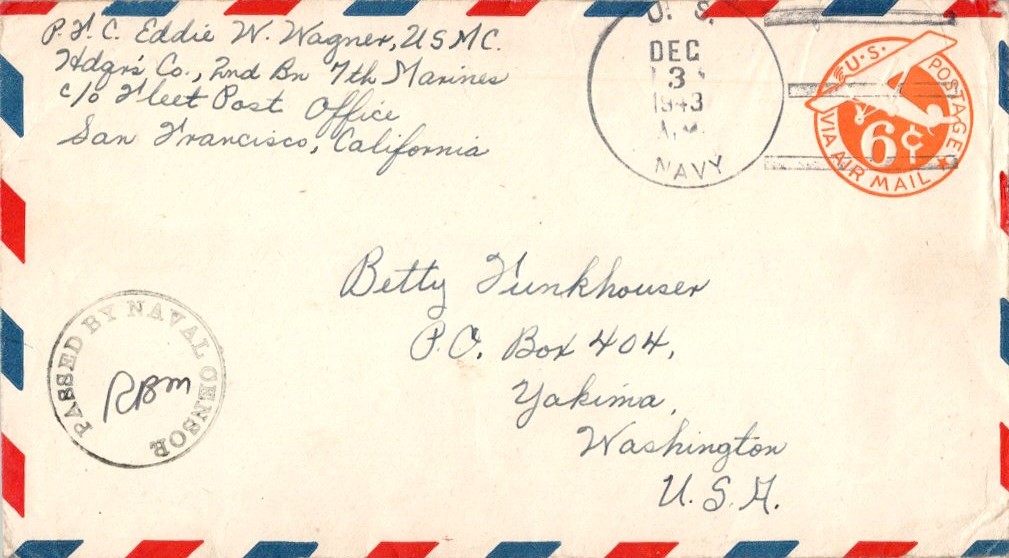 P. F. C. Eddie W. Wagner, USMC.
Hdqrs' Co., 2nd Bn 7th Marines
c/o Fleet Post Office
San Francisco, California
U. S.
DEC
3
1943
A.M.
NAVY
U.S. POSTAGE
6¢
VIA AIR MAIL
Betty Funkhouser
P.O. Box 404,
Yakima,
Washington
U.S.A.
PASSED BY NAVAL CENSOR
RBM